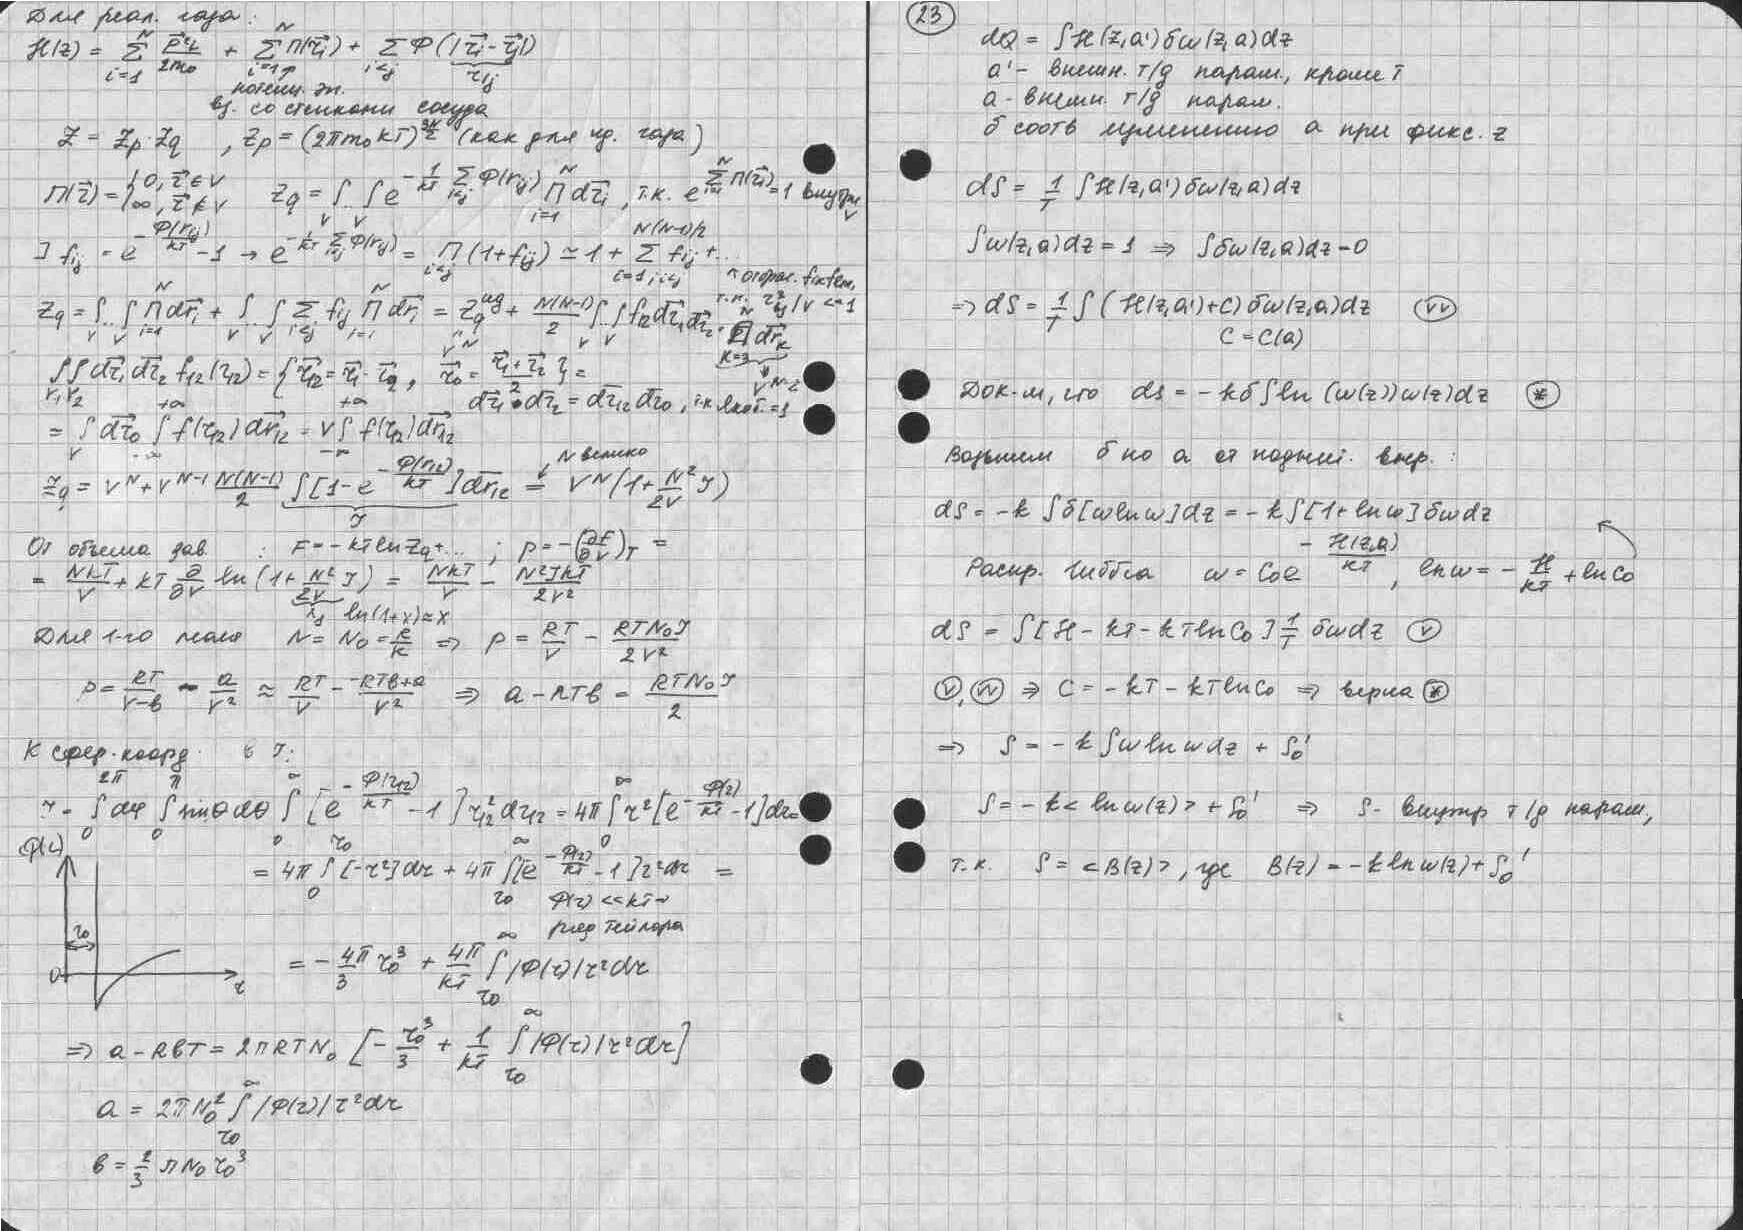 Для реал. газа:
H(z) = Σ_{i=1}^{N} p⃗_i²/2m₀ + Σ_{i=1}^{N} П(r⃗_i) + Σ_{i<j} Φ(|r⃗_i - r⃗_j|)
r_ij
потенц. эн.
вз. со стенками сосуда
Z = Z_p · Z_q , Z_p = (2πm₀kT)^{3N/2} (как для ид. газа)
П(r⃗) = { 0, r⃗ ∈ V ; ∞, r⃗ ∉ V   Z_q = ∫_V..∫_V e^{-1/kT Σ_{i<j} Φ(r_ij)} П_{i=1}^{N} dr⃗_i , т.к. e^{Σ_{i=1}^{N} П(r⃗_i)} = 1 внутри V
] f_ij = e^{-Φ(r_ij)/kT} - 1 → e^{-1/kT Σ_{i<j} Φ(r_ij)} = П_{i<j} (1+f_ij) ≃ 1 + Σ_{i=1, i<j}^{N(N-1)/2} f_ij + ...
Z_q = ∫_V..∫_V П_{i=1}^{N} dr⃗_i + ∫_V..∫_V Σ_{i<j} f_ij П_{i=1}^{N} dr⃗_i = Z_q^{ид} + N(N-1)/2 ∫_V ∫_V f₁₂ dr⃗₁ dr⃗₂ · П_{k=3}^{N} dr⃗_k
V^N   V^{N-2}
∫_{V₁}∫_{V₂} dr⃗₁ dr⃗₂ f₁₂(r₁₂) = { r⃗₁₂ = r⃗₁ - r⃗₂ , r⃗₀ = (r⃗₁ + r⃗₂)/2 } =
dr⃗₁ · dr⃗₂ = dr⃗₁₂ dr⃗₀ , т.к. Якоб. = 1
= ∫_V dr⃗₀ ∫_{-∞}^{+∞} f(r₁₂) dr⃗₁₂ = V ∫_{-∞}^{+∞} f(r₁₂) dr⃗₁₂
N велико
Z_q = V^N + V^{N-1} N(N-1)/2 ∫ [1 - e^{-Φ(r₁₂)/kT}] dr⃗₁₂ = V^N (1 + N²/2V J)
J
От объема зав. : F = -kT ln Z_q + ... ; p = -(∂F/∂V)_T =
= NkT/V + kT ∂/∂V ln (1 + N²/2V J) = NkT/V - N²JkT/2V²
ln(1+x) ≈ x
Для 1-го моля N = N₀ = R/k ⇒ p = RT/V - RTN₀J/2V²
p = RT/(V-b) - a/V² ≈ RT/V - (-RTb+a)/V² ⇒ a - RTb = RTN₀J/2
К сфер. коорд. в J:
J = ∫₀^{2π} dφ ∫₀^π sinθ dθ ∫₀^∞ [e^{-Φ(r₁₂)/kT} - 1] r₁₂² dr₁₂ = 4π ∫₀^∞ r² [e^{-Φ(r)/kT} - 1] dr =
Φ(r)
= 4π ∫₀^{r₀} [-r²] dr + 4π ∫_{r₀}^∞ [e^{-Φ(r)/kT} - 1] r² dr =
r₀
Φ(r) << kT →
ряд Тейлора
0
r
= -4π/3 r₀³ + 4π/kT ∫_{r₀}^∞ |Φ(r)| r² dr
⇒ a - RbT = 2πRTN₀ [-r₀³/3 + 1/kT ∫_{r₀}^∞ |Φ(r)| r² dr]
a = 2πN₀² ∫_{r₀}^∞ |Φ(r)| r² dr
b = 2/3 πN₀ r₀³
23
dQ = ∫ H(z,a') δω(z,a) dz
a' - внешн. т/д парам., кроме T
a - внешн. т/д парам.
δ соотв изменению a при фикс. z
dS = 1/T ∫ H(z,a') δω(z,a) dz
∫ω(z,a)dz = 1 ⇒ ∫δω(z,a)dz = 0
⇒ dS = 1/T ∫ (H(z,a') + C) δω(z,a) dz (vv)
C = C(a)
Док-м, что dS = -kδ∫ln (ω(z)) ω(z) dz (*)
Возьмем δ по a от подынт. выр. :
dS = -k ∫δ[ω ln ω] dz = -k ∫[1 + ln ω] δω dz
Распр. Гиббса ω = C₀ e^{-H(z,a)/kT} , ln ω = -H/kT + ln C₀
dS = ∫[H - kT - kT ln C₀] 1/T δω dz (v)
(v), (vv) ⇒ C = -kT - kT ln C₀ ⇒ верна (*)
⇒ S = -k ∫ω ln ω dz + S₀'
S = -k< ln ω(z) > + S₀' ⇒ S - внутр т/д парам,
т.к. S = <B(z)>, где B(z) = -k ln ω(z) + S₀'